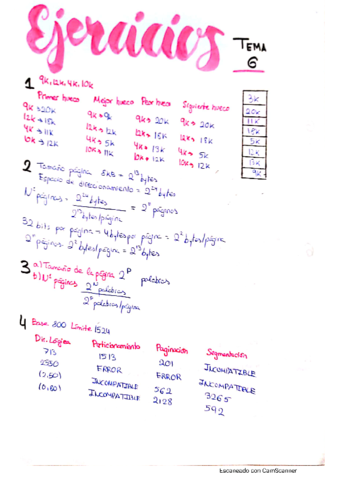 Ejercicios
TEMA
6
1 9k, 12k, 4k, 10k
Primer hueco Mejor hueco Peor hueco Siguiente hueco
9k → 20k 9k → 9k 9k → 20k 9k → 20k
12k → 18k 12k → 12k 12k → 18k 12k → 18k
4k → 11k 4k → 5k 4k → 13k 4k → 5k
10k → 12k 10k → 11k 10k → 12k 10k → 12k
3k
20k
11k
18k
5k
12k
13k
9k
2 Tamaño página 8kB = 2^13 bytes
Espacio de direccionamiento = bytes
Nº páginas = bytes = páginas
bytes/página
32 bits por página → 4 bytes por página = 2² bytes/página
páginas · 2² bytes/página = bytes
3 a) Tamaño de la página 2^P palabras
b) Nº páginas palabras
palabras/página
4 Base 800 Límite 1524
Dir. Lógica Particionamiento Paginación Segmentación
713 1513 201 INCOMPATIBLE
2530 ERROR ERROR INCOMPATIBLE
INCOMPATIBLE 562 3265
INCOMPATIBLE 2128 592
Escaneado con CamScanner